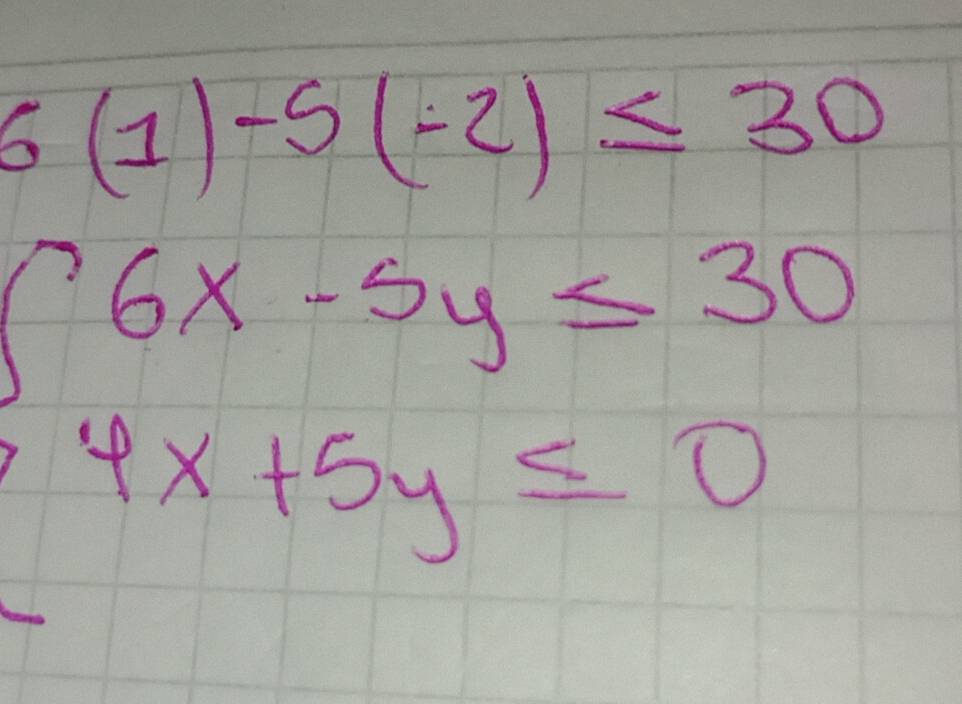 6(1)-5(-2) ≤ 30
6x - 5y ≤ 30
4x + 5y ≤ 0